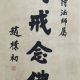 法師屬
戒念佛
趙樸初